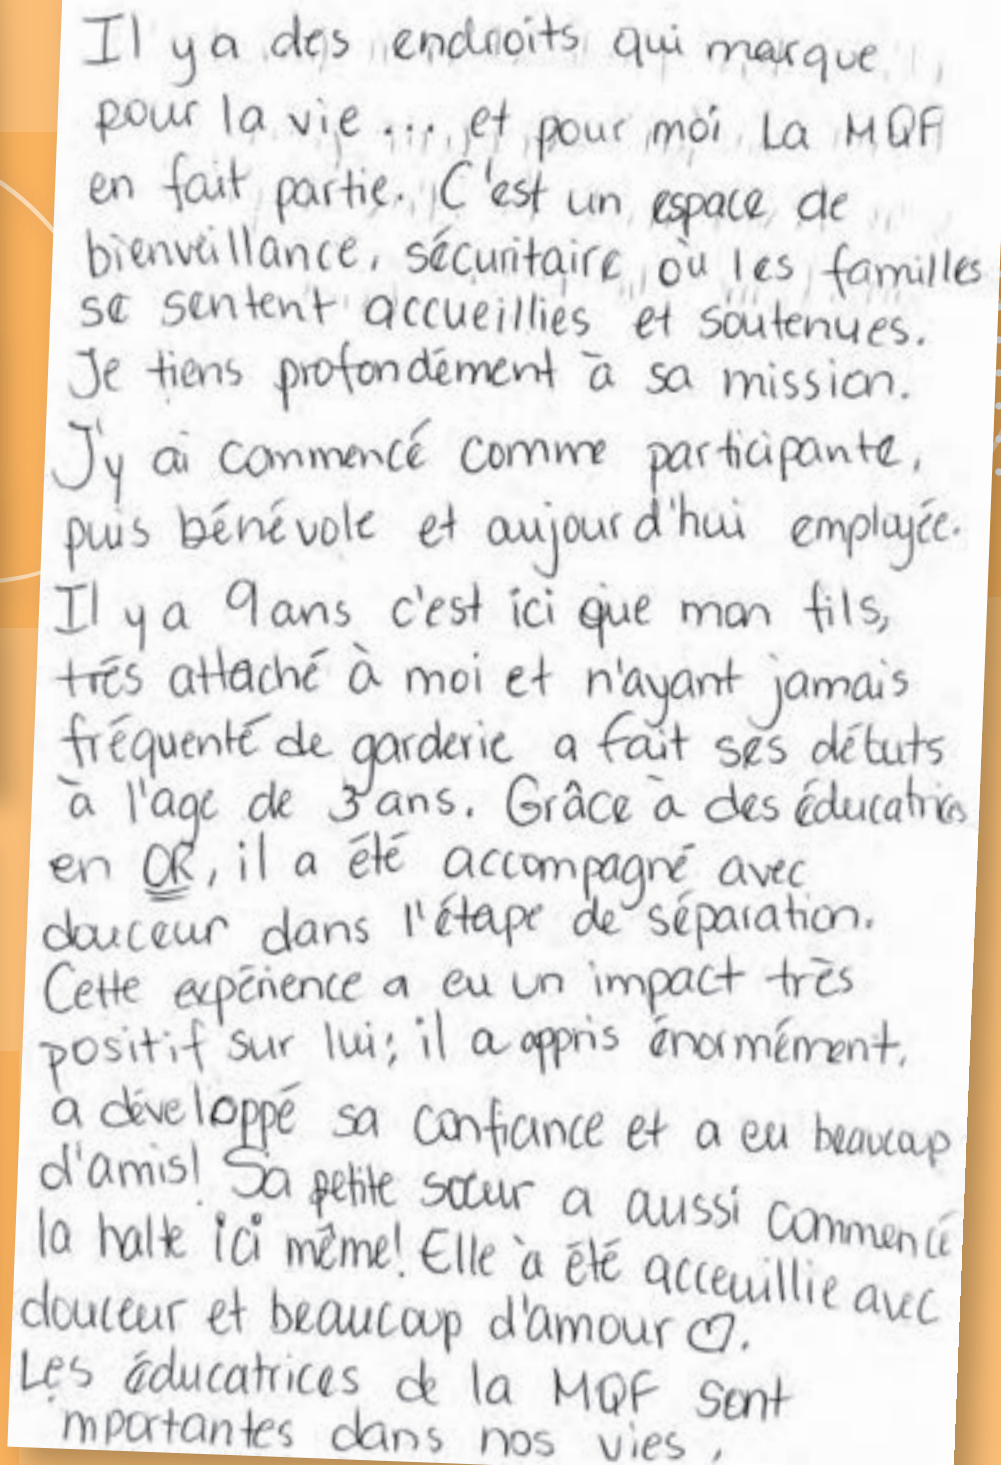 Il y a des endroits qui marque
pour la vie ... et pour moi La MQF
en fait partie. C'est un espace de
bienveillance, sécuritaire où les familles
se sentent accueillies et soutenues.
Je tiens profondément à sa mission.
J'y ai commencé comme participante,
puis bénévole et aujourd'hui employée.
Il y a 9 ans c'est ici que mon fils,
très attaché à moi et n'ayant jamais
fréquenté de garderie a fait ses débuts
à l'age de 3 ans. Grâce à des éducatrices
en OR, il a été accompagné avec
douceur dans l'étape de séparation.
Cette expérience a eu un impact très
positif sur lui; il a appris énormément,
a développé sa confiance et a eu beaucoup
d'amis! Sa petite soeur a aussi commencé
la halte ici même! Elle à été acceuillie avec
douceur et beaucoup d'amour ♡.
Les éducatrices de la MQF sont
mportantes dans nos vies,